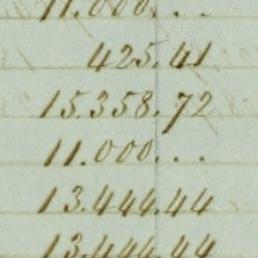 11.000. . .
425.41
15.358.72
11.000. . .
13.444.44
13.444.44